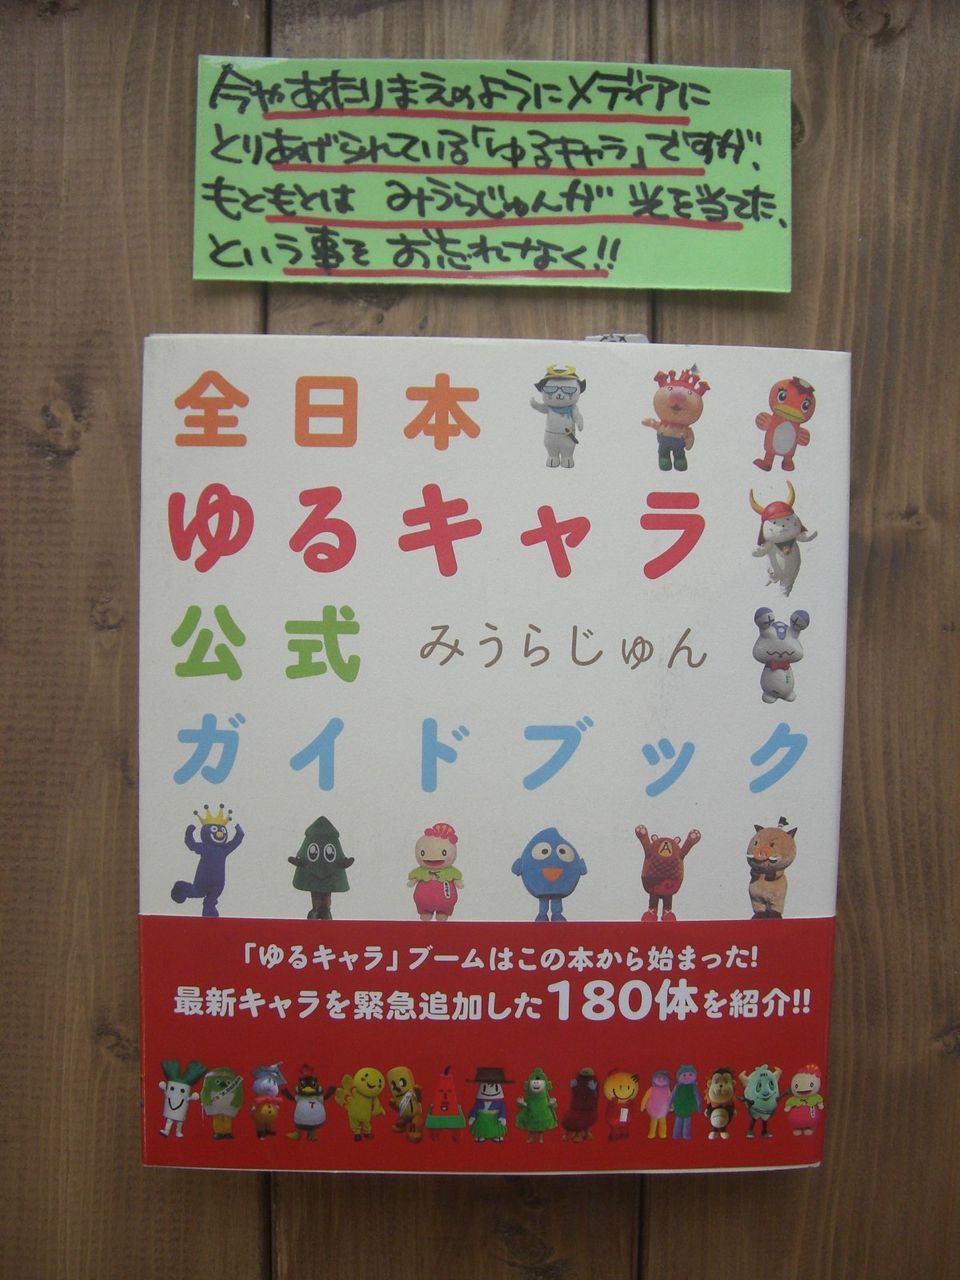 今やあたりまえのようにメディアに
とりあげられている「ゆるキャラ」ですが、
もともとは みうらじゅんが 光を当てた、
という事を お忘れなく!!
全日本
ゆるキャラ
公式 みうらじゅん
ガイドブック
「ゆるキャラ」ブームはこの本から始まった!
最新キャラを緊急追加した180体を紹介!!